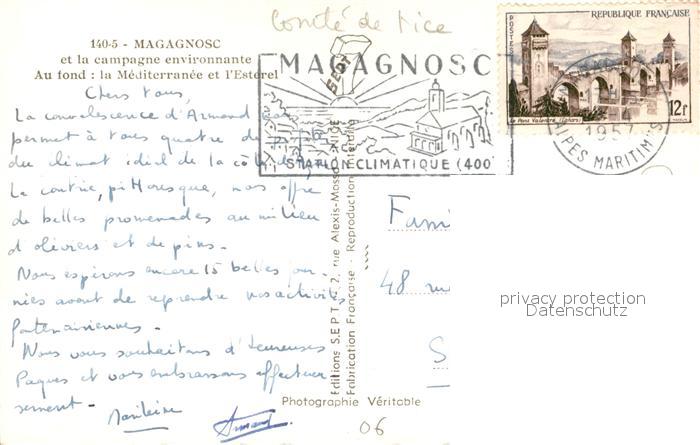 Comté de Nice
140-5 - MAGAGNOSC
et la campagne environnante
Au fond : la Méditerranée et l'Estérel
POSTES
REPUBLIQUE FRANÇAISE
Le Pont Valentré (Cahors)
12f
MAGAGNOSC
STATION CLIMATIQUE (400
1957
ALPES MARITIMES
Chers tous,
La convalescence d'Armand
permet à tous quatre de
du climat idéal de la côte
La contrée, pittoresque, nous offre
de belles promenades au milieu
d'oliviers et de pins.
Nous espérons encore 15 belles jour-
nées avant de reprendre nos activités
parisiennes.
Nous vous souhaitons d'heureuses
Pâques et vous embrassons affectueu
sement.
Armand
Editions S.E.P.T., 2, rue Alexis-Mossa
Fabrication Française - Reproduction
Fami
48 ru
S
privacy protection
Datenschutz
Photographie Véritable
06